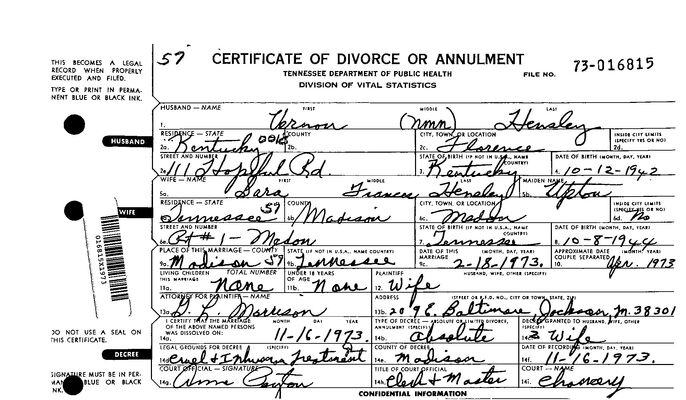 57 CERTIFICATE OF DIVORCE OR ANNULMENT 73-016815
TENNESSEE DEPARTMENT OF PUBLIC HEALTH FILE NO.
DIVISION OF VITAL STATISTICS
THIS BECOMES A LEGAL
RECORD WHEN PROPERLY
EXECUTED AND FILED.
TYPE OR PRINT IN PERMA-
NENT BLUE OR BLACK
INK.
HUSBAND — NAME FIRST MIDDLE LAST
1. Vernon (nmn) Hensley
HUSBAND
RESIDENCE — STATE COUNTY CITY, TOWN, OR LOCATION INSIDE CITY LIMITS (SPECIFY YES OR NO)
2a. Kentucky 2b. 2c. Florence 2d.
STREET AND NUMBER STATE OF BIRTH (IF NOT IN U.S.A., NAME COUNTRY) DATE OF BIRTH (MONTH, DAY, YEAR)
2e. 111 Hopful Rd. 3. Kentucky 4. 10-12-1942
WIFE — NAME FIRST MIDDLE LAST MAIDEN NAME
5a. Sara Frances Hensley 5b. Upton
WIFE
RESIDENCE — STATE COUNTY CITY, TOWN, OR LOCATION INSIDE CITY LIMITS (SPECIFY YES OR NO)
6a. Tennessee 57 6b. Madison 6c. Medon 6d. No
STREET AND NUMBER STATE OF BIRTH (IF NOT IN U.S.A., NAME COUNTRY) DATE OF BIRTH (MONTH, DAY, YEAR)
6e. Rt # 1 - Medon 7. Tennessee 8. 10-8-1944
PLACE OF THIS MARRIAGE — COUNTY STATE (IF NOT IN U.S.A., NAME COUNTRY) DATE OF THIS MARRIAGE (MONTH, DAY, YEAR) APPROXIMATE DATE COUPLE SEPARATED (MONTH, YEAR)
9a. Madison 57 9b. Tennessee 9c. 2-18-1973. 10. Apr. 1973
LIVING CHILDREN THIS MARRIAGE TOTAL NUMBER UNDER 18 YEARS OF AGE PLAINTIFF HUSBAND, WIFE, OTHER (SPECIFY)
11a. None 11b. None 12. Wife
ATTORNEY FOR PLAINTIFF — NAME ADDRESS (STREET OR R.F.D. NO., CITY OR TOWN, STATE, ZIP)
13a. 13b. 20 98. Baltimore, Jackson, 38301
I CERTIFY THAT THE MARRIAGE OF THE ABOVE NAMED PERSONS WAS DISSOLVED ON: MONTH DAY YEAR TYPE OF DECREE — ABSOLUTE OR LIMITED DIVORCE, ANNULMENT (SPECIFY) DECREE GRANTED TO HUSBAND, WIFE, OTHER (SPECIFY)
14a. 11-16-1973. 14b. Absolute 14c. Wife
DO NOT USE A SEAL ON
THIS CERTIFICATE.
DECREE
LEGAL GROUNDS FOR DECREE (SPECIFY) COUNTY OF DECREE DATE OF RECORDING (MONTH, DAY, YEAR)
14d. Cruel & Inhuman Treatment 14e. Madison 14f. 11-16-1973.
SIGNATURE MUST BE IN PER-
MANENT BLUE OR BLACK
INK.
COURT OFFICIAL — SIGNATURE TITLE OF COURT OFFICIAL COURT — NAME
14g. Anne 14h. Clerk & Master 14i. Chancery
CONFIDENTIAL INFORMATION